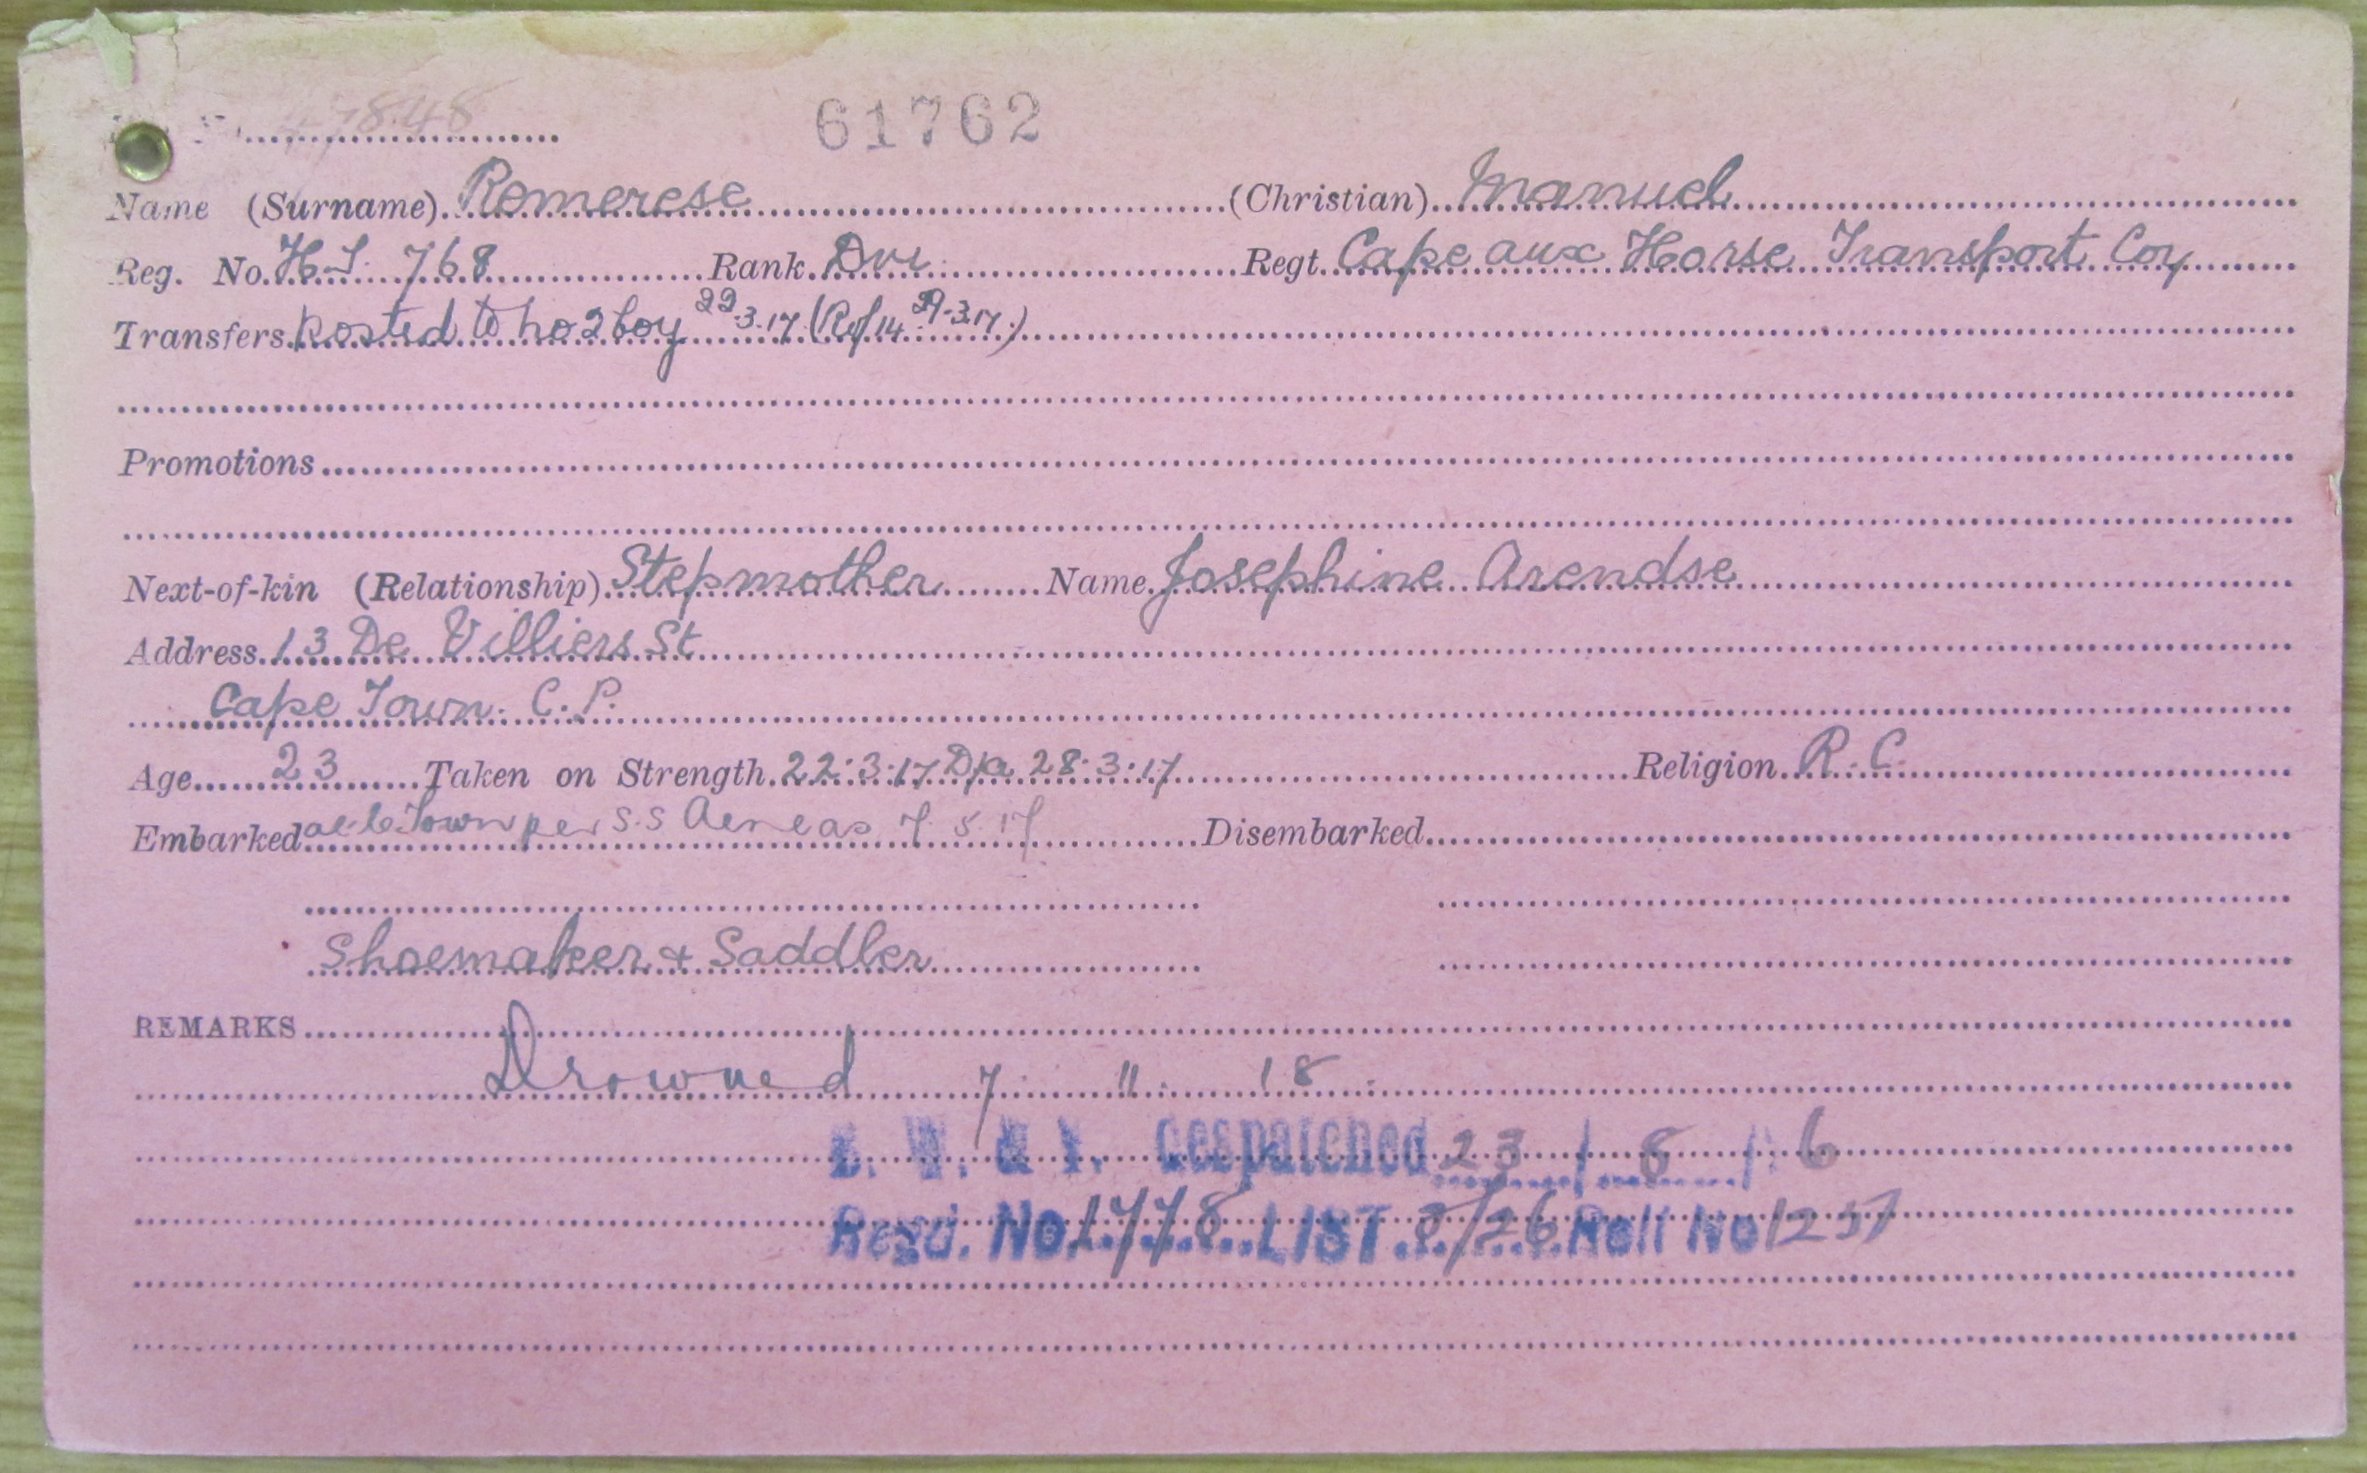 61762
Name (Surname) Romerese (Christian) Manuel
Reg. No. H.T. 768 Rank Dvr Regt. Cape aux Horse Transport Coy
Transfers Posted to No 2 Coy 22.3.17 (Ref 14 29.3.17.)
Promotions
Next-of-kin (Relationship) Stepmother Name Josephine Arendse
Address 13 De Villiers St
Cape Town. C.P.
Age 23 Taken on Strength 22.3.17 28.3.17 Religion R.C.
Embarked at C. Town per S.S Aeneas 7.5.17 Disembarked
Shoemaker & Saddler
REMARKS
Drowned 7.11.18.
B. W. & V. despatched 23/8/ 6
Regd. No. 1778 LIST 8/26 Roll No 1257